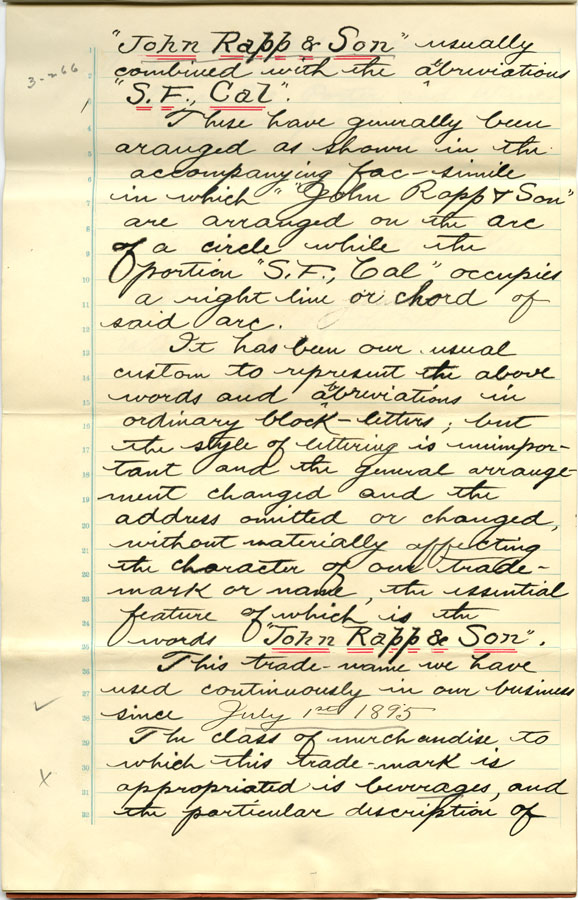 "John Rapp & Son" usually
3-266
combined with the abreviations
"S. F., Cal".
These have generally been
aranged as shown in the
accompanying fac-simile
in which "John Rapp & Son"
are arranged on the arc
of a circle while the
portion "S. F., Cal" occupies
a right line or chord of
said arc.
It has been our usual
custom to represent the above
words and abreviations in
ordinary block-letters; but
the style of lettering is unimpor-
tant and the general arrange-
ment changed and the
address omitted or changed,
without materially affecting
the character of our trade-
mark or name, the essential
feature of which is the
words "John Rapp & Son".
This trade-name we have
used continuously in our business
since July 1st 1895
The class of merchandise to
which this trade-mark is
appropriated is beverages, and
the particular description of